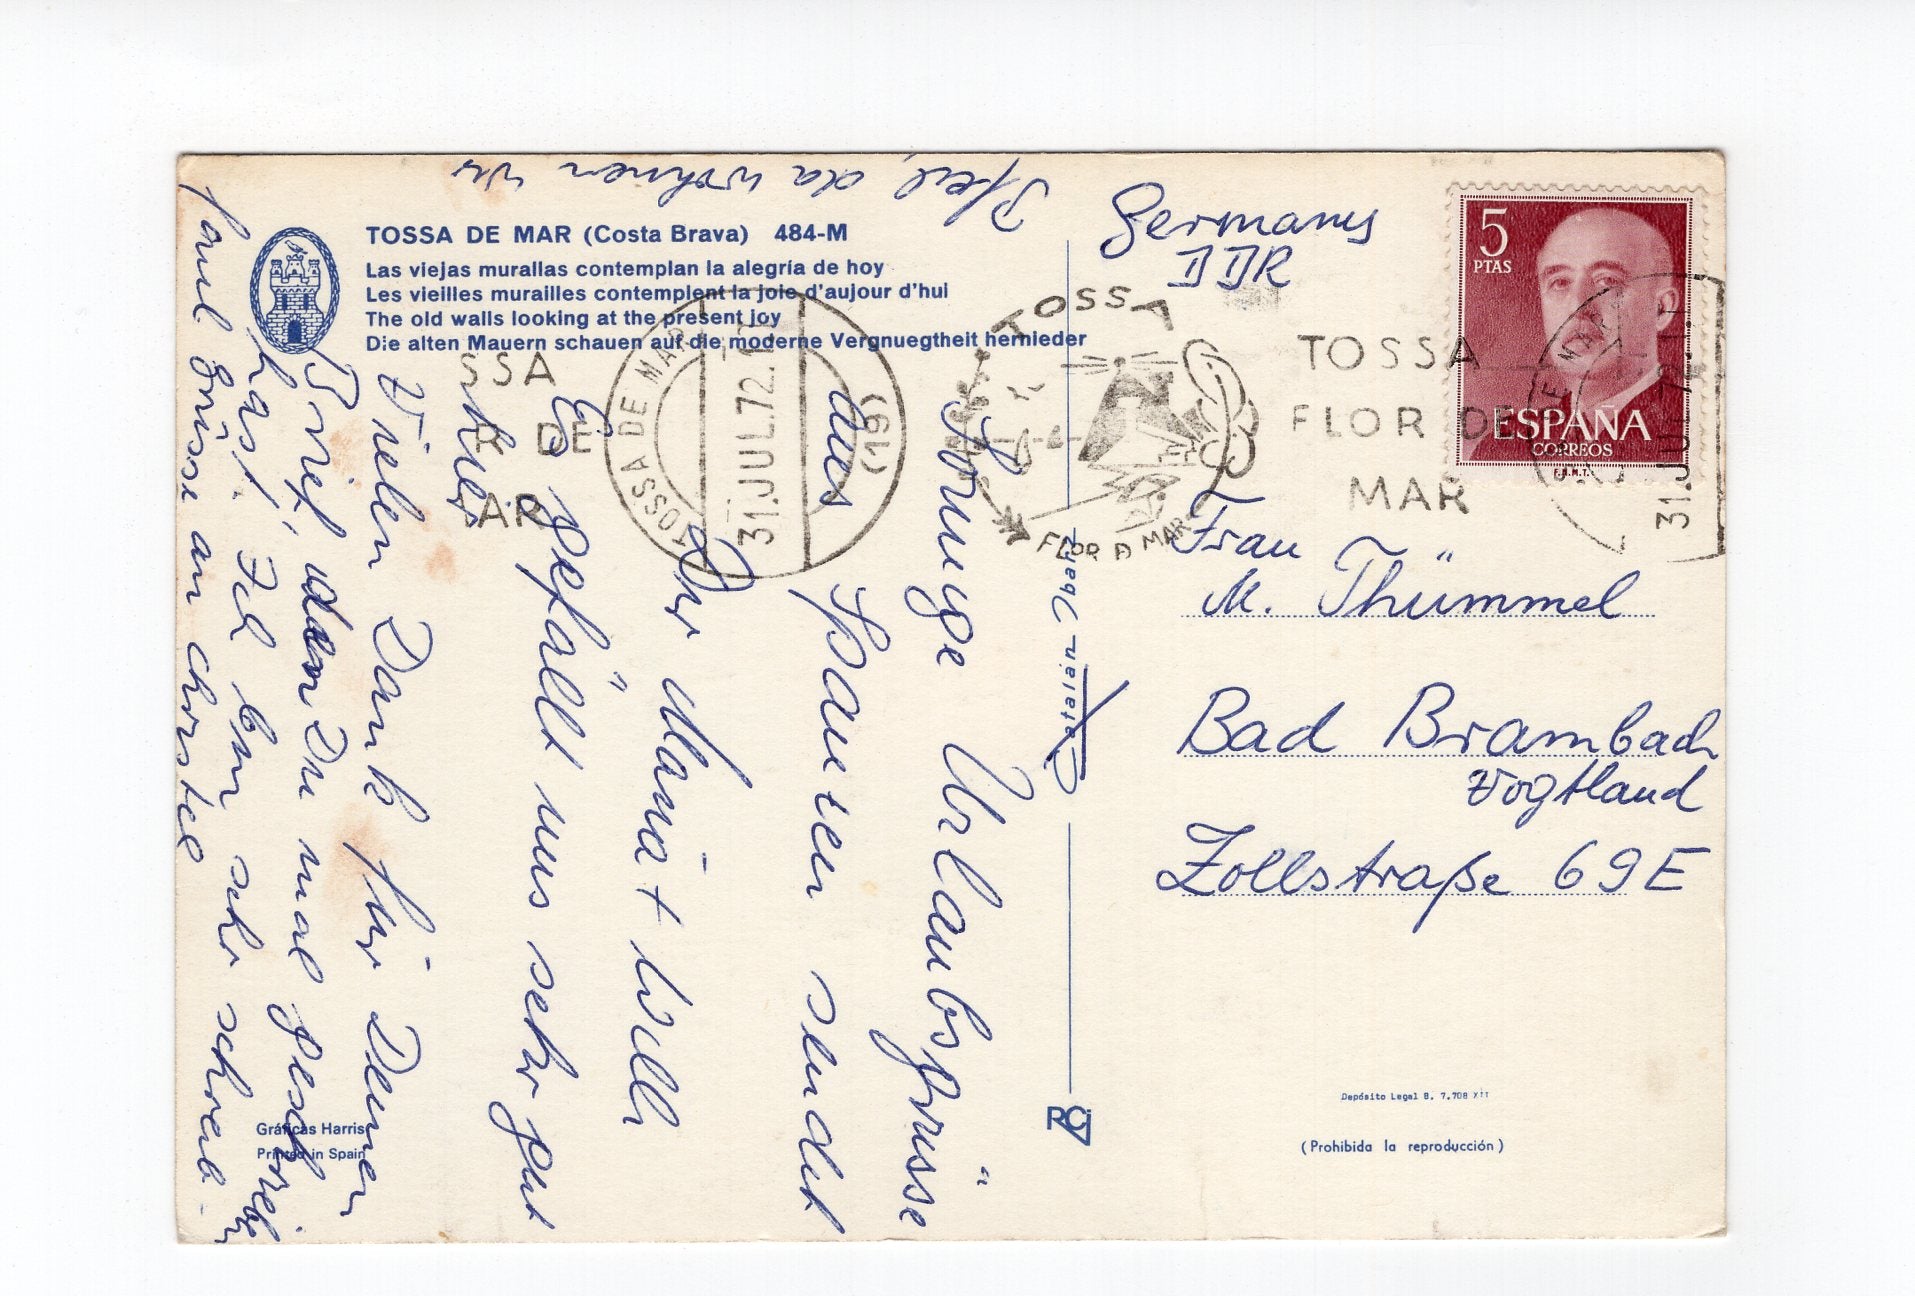 TOSSA DE MAR (Costa Brava) 484-M
Las viejas murallas contemplan la alegría de hoy
Les vieilles murailles contemplent la joie d'aujour d'hui
The old walls looking at the present joy
Die alten Mauern schauen auf die moderne Vergnuegtheit hernieder
Pfeil, da wohnen wir
Sonnige Urlaubsgrüsse
aus Spanien sendet
Dir Maria + Willi
Es gefällt uns sehr gut
hier
Vielen Dank für Deinen
Brief, den Du mal geschrieben
hast. Ich bin sehr schreib-
faul. Grüsse an Christel
Germany
DDR
Frau
M. Thümmel
Bad Brambach
Vogtland
Zollstraße 69E
5
PTAS
ESPAÑA
CORREOS
F.N.M.T.
TOSSA
FLOR D MAR
TOSSA
FLOR DE
MAR
SSA
R DE
AR
TOSSA DE MAR
31.JUL.72.
(19)
DE MAR
31.JUL.72
Catalan Ibaiz
RCi
Gráficas Harrise
Printed in Spain
Depósito Legal B. 7.708 XII
(Prohibida la reproducción)